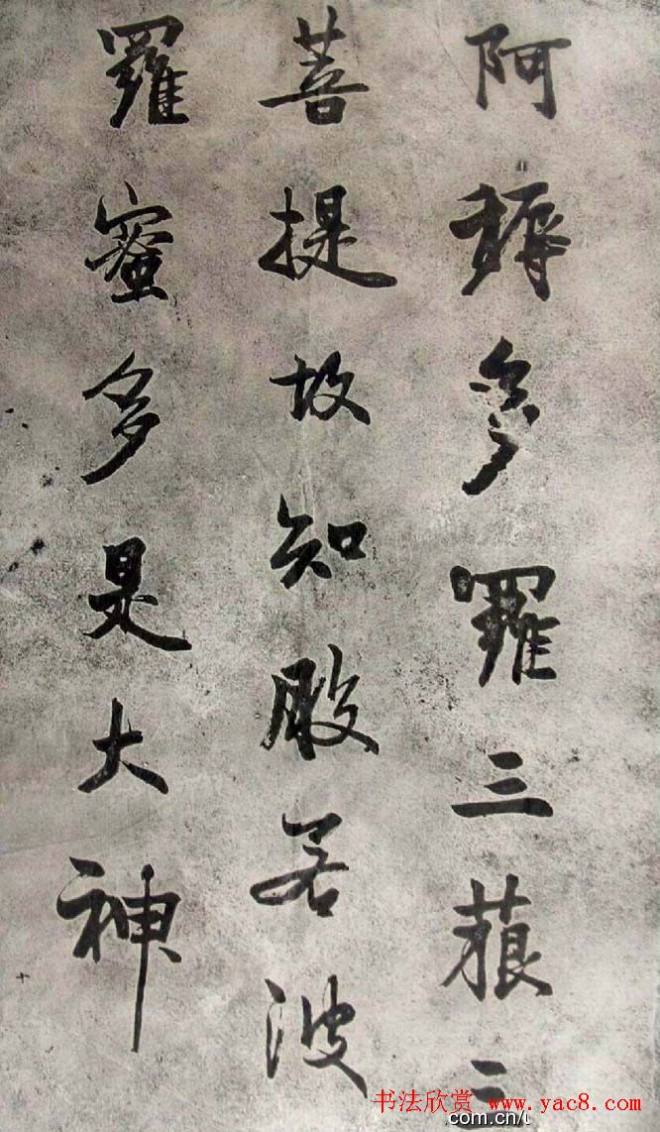 阿耨多羅三藐三
菩提故知般若波
羅蜜多是大神
书法欣赏 www.yac8.com
com.cn/